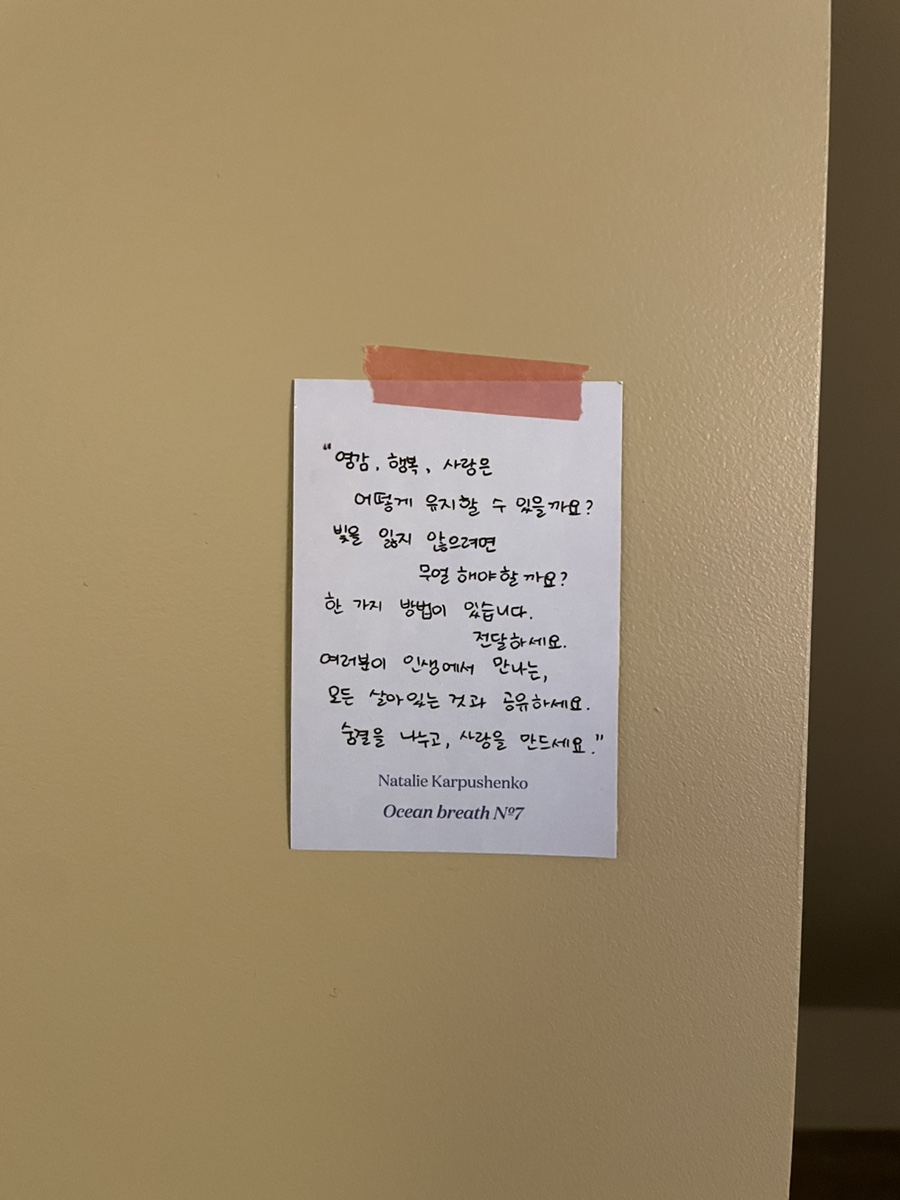 “영감, 행복, 사랑은
어떻게 유지할 수 있을까요?
빛을 잃지 않으려면
무얼 해야할까요?
한 가지 방법이 있습니다.
전달하세요.
여러분이 인생에서 만나는,
모든 살아있는 것과 공유하세요.
숨결을 나누고, 사랑을 만드세요.”
Natalie Karpushenko
Ocean breath Nº7